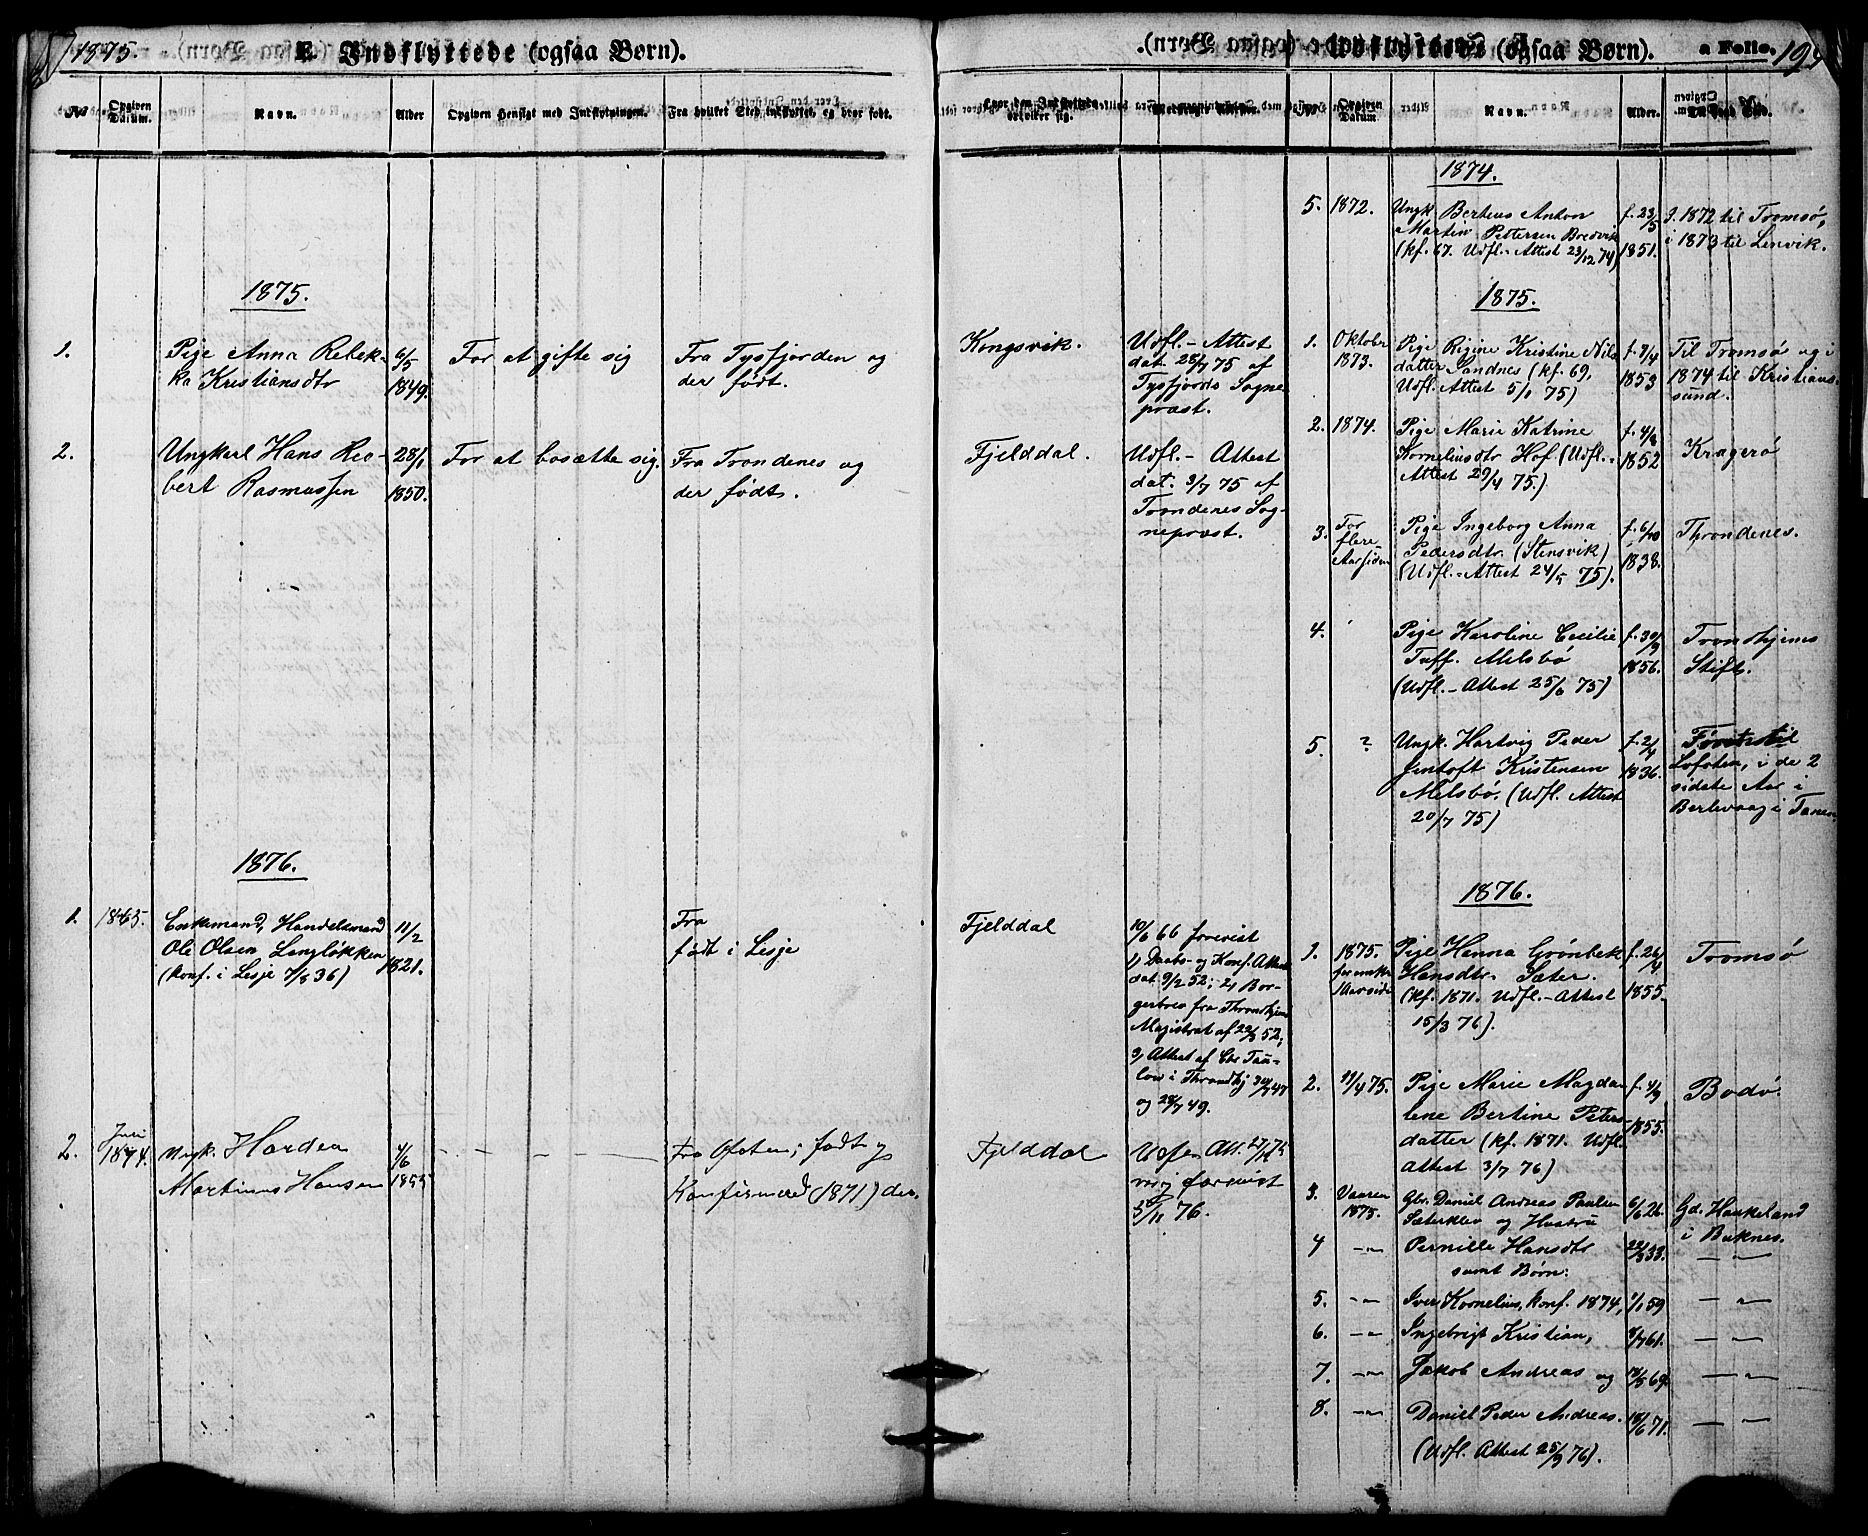 1875.
E. Indflyttede (ogsaa Børn).
Udflyttede (ogsaa Børn).
a Folio.
No
Opgiven Datum.
Navn.
Alder
Opgiven Hensigt med Indflytningen.
Fra hvilket Sted indflyttet, og hvor født.
Hvor den Indflyttede
Opgiven Datum
Navn.
Alder.
1875.
1.
Pige Anna Rebek-
ka Kristiansdtr
6/5
1849.
For at gifte sig
Fra Tysfjorden og
der født.
Kongsvik.
Udfl.- Attest
dat. 28/7 75 af
Tysfjords Sogne
præst.
2.
Ungkarl Hans Ree-
bert Rasmussen
28/1
1850.
For at bosætte sig.
Fra Trondenes og
der født.
Fjelddal.
Udfl.- Attest
dat. 3/7 75 af
Trondenes Sog-
nepræst.
1876.
1.
1865.
Enkemand, Handelsmand
Ole Olsen Langløkken
(konf. i Lesje 7/8 36)
11/2
1821.
Fra
født i Lesje
Fjelddal
10/6 66 forevist
1) Daabs- og Konf. Attest
dat. 9/2 52; 2) Bor-
gerbrev fra Throndhjems
Magistrat af 22/3 52;
3) Attest af Chr Tau-
low i Throndhj 30/7 47
og 28/7 49.
2.
Juni
1874.
Ungk. Hardea
Martinus Hansen
4/6
1855
Fra Ofoten; født og
Konfirmered (1871) der.
Fjelddal
mig forevist
5/11 76.
1874.
5.
1872.
Ungk. Berteus Anton
Martin Pettersen Bredvik
(kf. 67. Udfl.- Attest 23/12 74)
f. 23/5
1851.
I 1872 til Tromsø,
i 1873 til Lenvik.
1875.
1.
Oktober
1873.
Pige Rigine Kristine Nils
datter Sandnes (kf. 69,
Udfl. Attest 5/1 75)
f. 7/4
1853
Til Tromsø og i
1874 til Kristians-
sund.
2.
1874.
Pige Marie Katrine
Korneliusdtr Hof (Udfl.-
Attest 29/4 75.)
f. 4/8
1852
Kragerø
3.
For
flere
Aar siden
Pige Ingeborg Anna
Pedersdtr. (Stensvik)
(Udfl.- Attest 24/5 75).
f. 6/10
1838.
Throndenes.
4.
Pige Karoline Cecilie
Tuff. Melsbø
(Udfl.- Attest 25/6 75)
f. 30/9
1856.
Trondhjems
Stift.
5.
?
Ungk. Hartvig Peder
Jentoft Kristensen
Melsbø. (Udfl. Attest
20/7 75)
f. 2/4
1836.
Lofoten, i de 2
sidste Aar i
Berlevaag i Tanen
1876.
1.
1875.
Pige Hanna Grønbek
Hansdtr. Sæter.
(kf. 1871. Udfl.- Attest
15/3 76).
f. 26/4
1855.
Tromsø
2.
11/4 75.
Pige Marie Magda-
lene Bertine Peters-
datter (kf. 1871. Udfl.
Attest 3/7 76)
f. 4/9
1855.
Bodø.
3.
Vaaren
1875.
Gbr. Daniel Andreas Paulsen
Sæterklev og Hustru
6/6 26.
Gd. Haukeland
i Buknes.
4
-"-
Pernille Hansdtr
samt Børn:
22/3 33.
— " —
5.
-"-
Iver Kornelius, konf. 1874,
1/1 59
— " —
6.
-"-
Ingebrigt Kristian,
8/7 61.
— " —
7.
-"-
Jakob Andreas og
18/5 69.
— " —
8.
-"-
Daniel Peder Andreas.
18/6 71.
— " —
(Udfl. Attest 25/9 76).